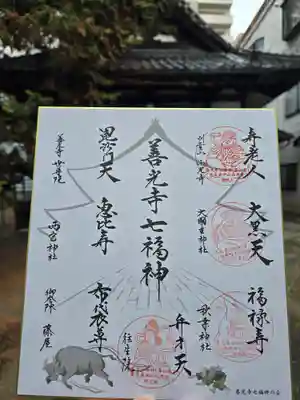 寿老人
大黒天
大國主神社
福禄寿
秋葉神社
弁才天
往生院
善光寺七福神
毘沙門天
善光寺 世尊院
恵比寿
西宮神社
布袋尊
御本陣 藤屋